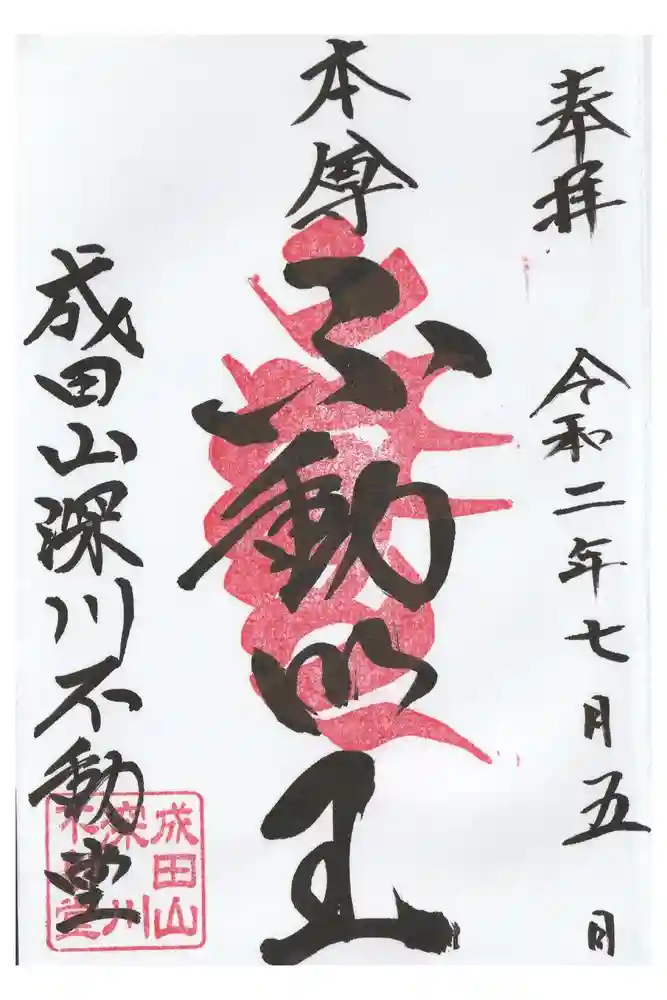 奉拝
令和二年七月五日
本尊
不動明王
成田山深川不動堂
成田山
深川
不動堂